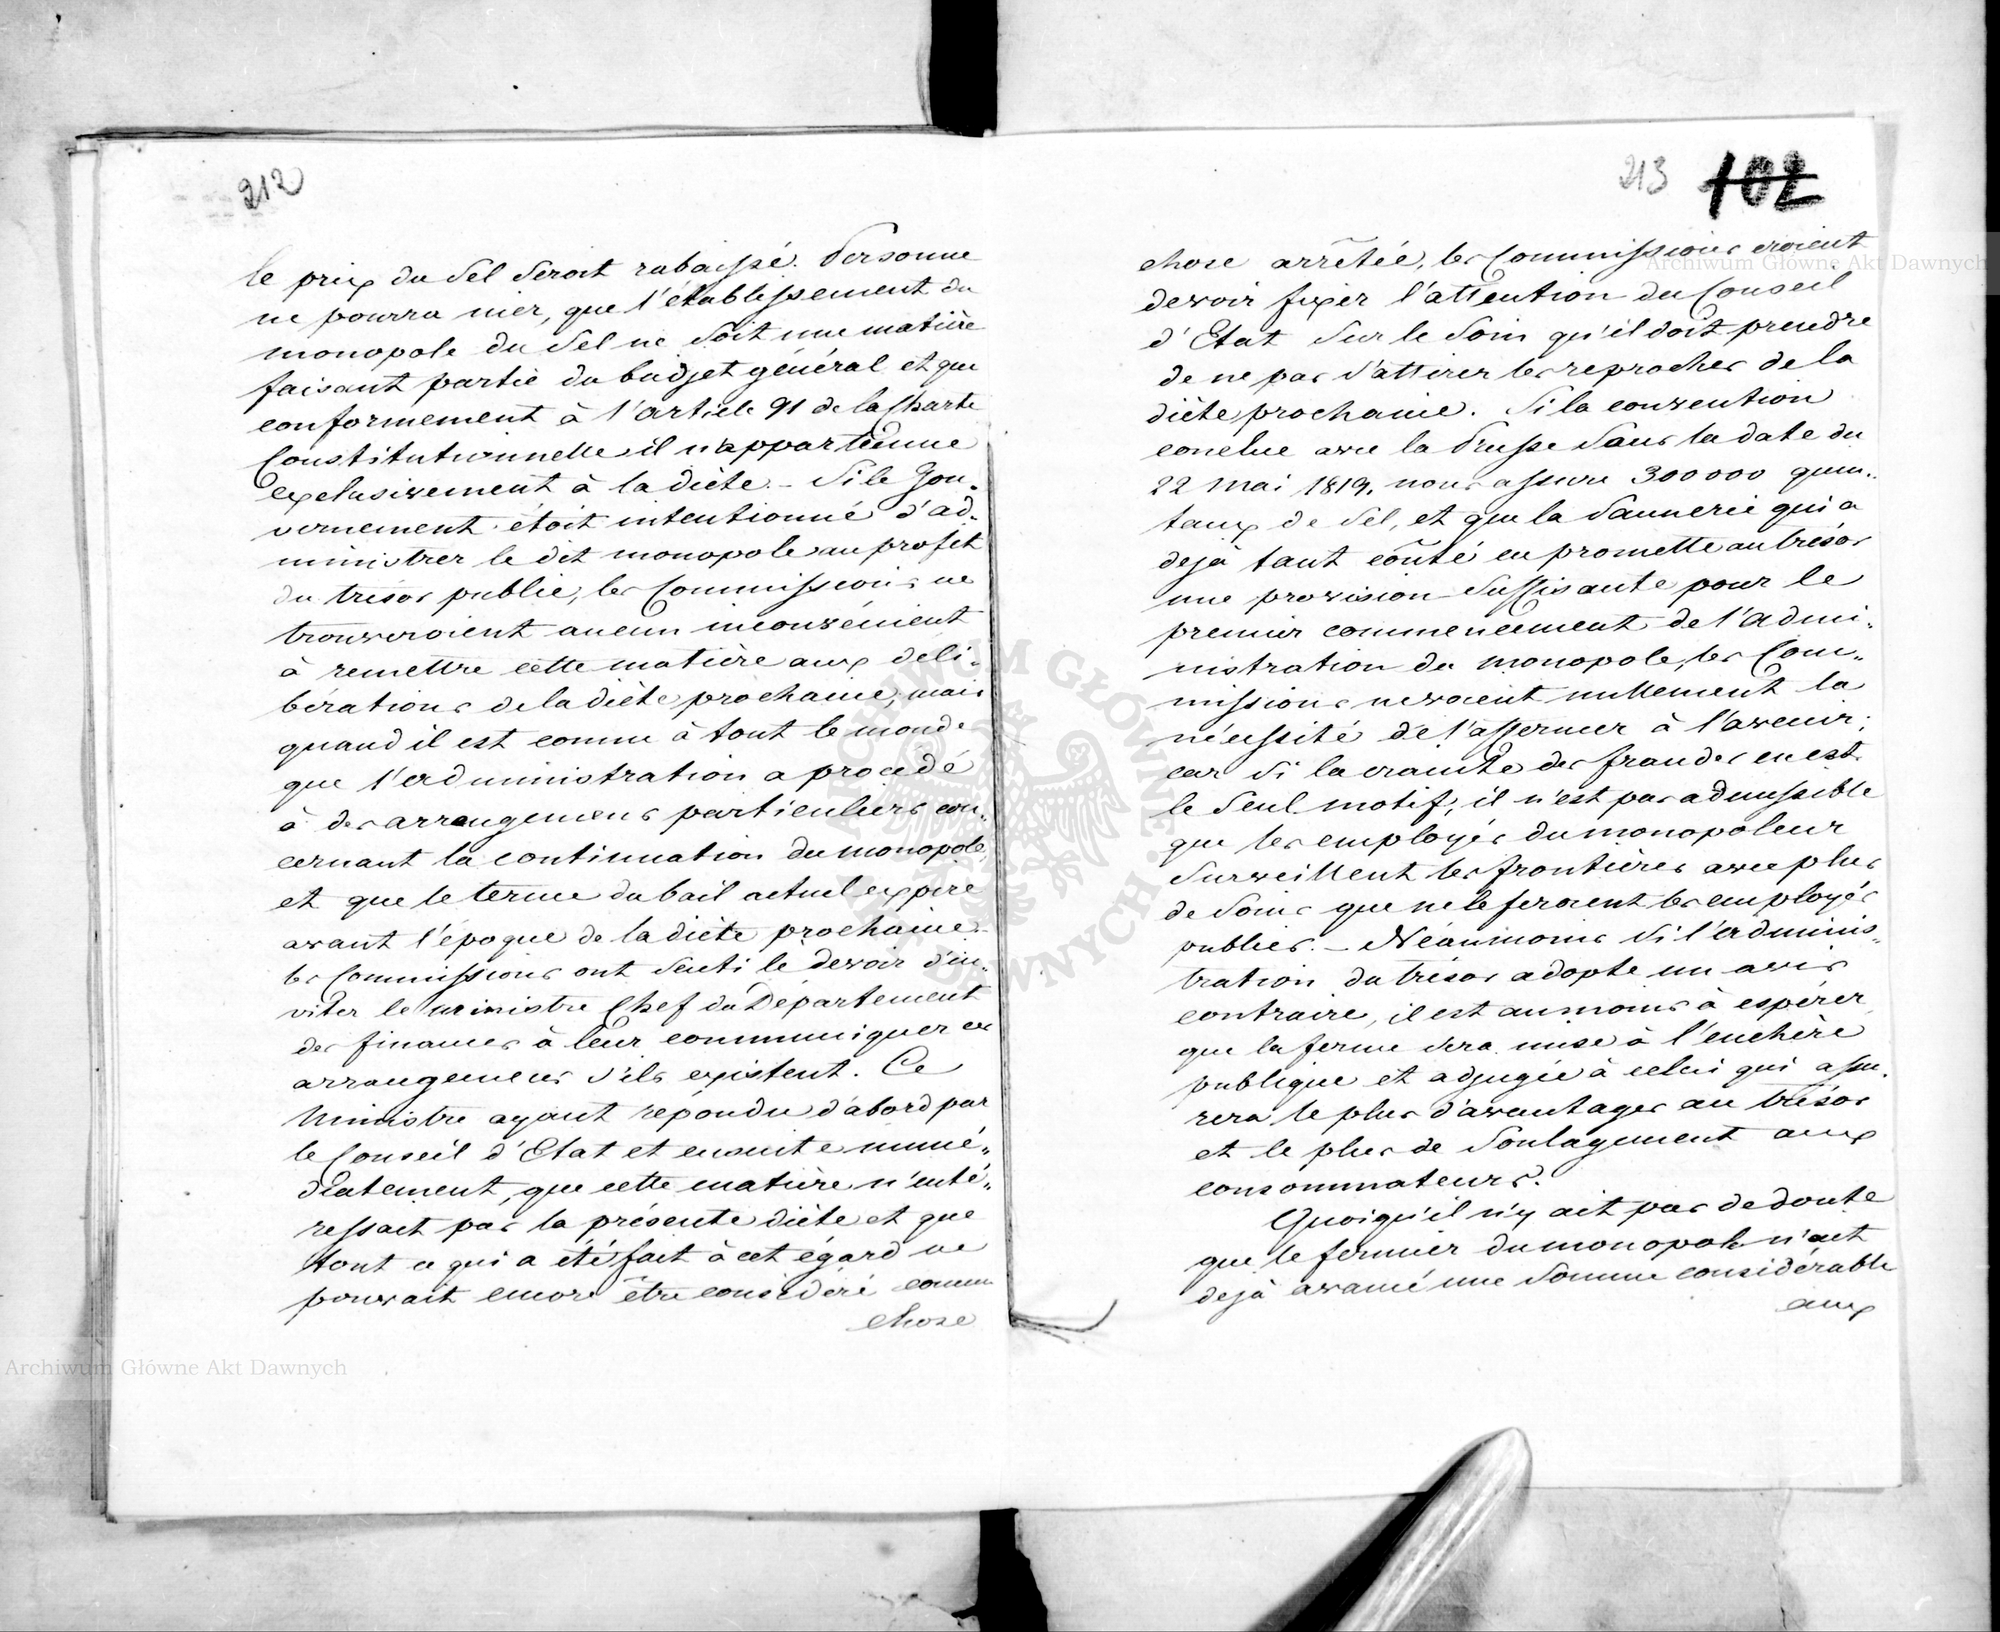 212
le prix du Sel seroit rabaissé. Personne
ne pourra nier, que l'établissement du
monopole du Sel ne soit une matière
faisant partie du budjet général et que
conformement à l'article 91 de la Charte
Constitutionnelle il n'appartienne
exclusivement à la diète. – Si le Gou„
vernement étoit intentionné d'ad„
ministrer le dit monopole au profit
du trésor public, les Commissions ne
trouveroient aucun inconvénient
à remettre cette matière aux deli„
bérations de la diète prochaine, mais
quand il est connu à tout le monde
que l'administration a procédé
à des arrangemens particuliers con„
cernant la continuation du monopole,
et que le terme du bail actuel expire
avant l'époque de la diète prochaine
les Commissions ont senti le devoir d'in„
viter le ministre Chef du Département
des finances à leur communiquer ces
arrangemens s'ils existent. Ce
Ministre ayant répondu d'abord par
le Conseil d'Etat et ensuite immé„
diatement, que cette matière n'inté„
ressait pas la présente diète et que
tout ce qui a été fait à cet égard ne
pouvait encore être considéré comme
chose
213 102
chose arrêtée, les Commissions croient
devoir fixer l'attention du Conseil
d'Etat sur le soin qu'il doit prendre
de ne pas s'attirer les reproches de la
diète prochaine. Si la convention
conclue avec la Prusse sous la date du
22 Mai 1819. nous assure 300000 quin„
taux de Sel, et que la Saunerie qui a
dejà tant coûté en promette au trésor
une provision suffisante pour le
premier commencement de l'admi„
nistration du monopole, les Com„
missions ne voient nullement la
nécessité de l'affermer à l'avenir;
car si la crainte des fraudes en est
le seul motif, il n'est pas admissible
que les employés du monopoleur
surveillent les frontières avec plus
de soins que ne le feroient les employés
publics. – Néanmoins si l'adminis„
tration du trésor adopte un avis
contraire, il est au moins à espérer,
que la ferme sera mise à l'enchère
publique et adjugée à celui qui assu„
rera le plus d'avantages au trésor
et le plus de soulagement aux
consommateurs.
Quoiqu'il n'y ait pas de doute
que le fermier du monopole n'ait
dejà avancé une somme considérable
aux
Archiwum Główne Akt Dawnych
Archiwum Główne Akt Dawnych
ARCHIWUM GŁÓWNE AKT DAWNYCH